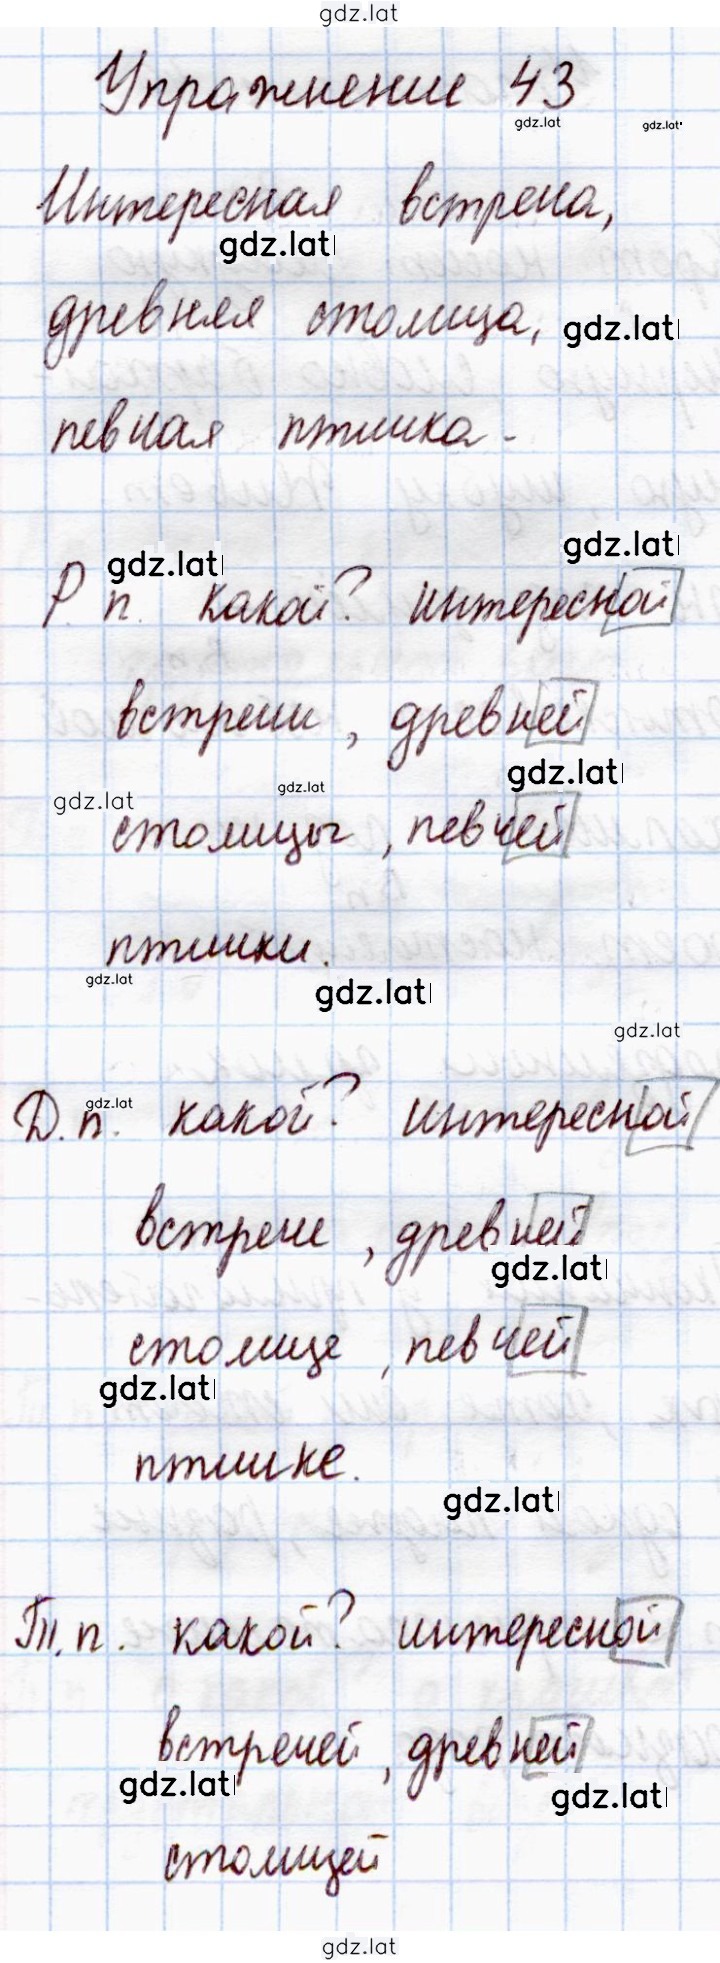 gdz.lat
Упражнение 43
gdz.lat gdz.lat
Интересная встреча,
gdz.lat
древняя столица, gdz.lat
певчая птичка.
gdz.lat gdz.lat
Р. п. какой? интересной
встречи, древней
gdz.lat gdz.lat gdz.lat
столицы, певчей
птички.
gdz.lat gdz.lat
gdz.lat
gdz.lat
Д. п. какой? интересной
встрече, древней
gdz.lat
столице, певчей
gdz.lat
птичке.
gdz.lat
Т. п. какой? интересной
встречей, древней
gdz.lat gdz.lat
столицей
gdz.lat